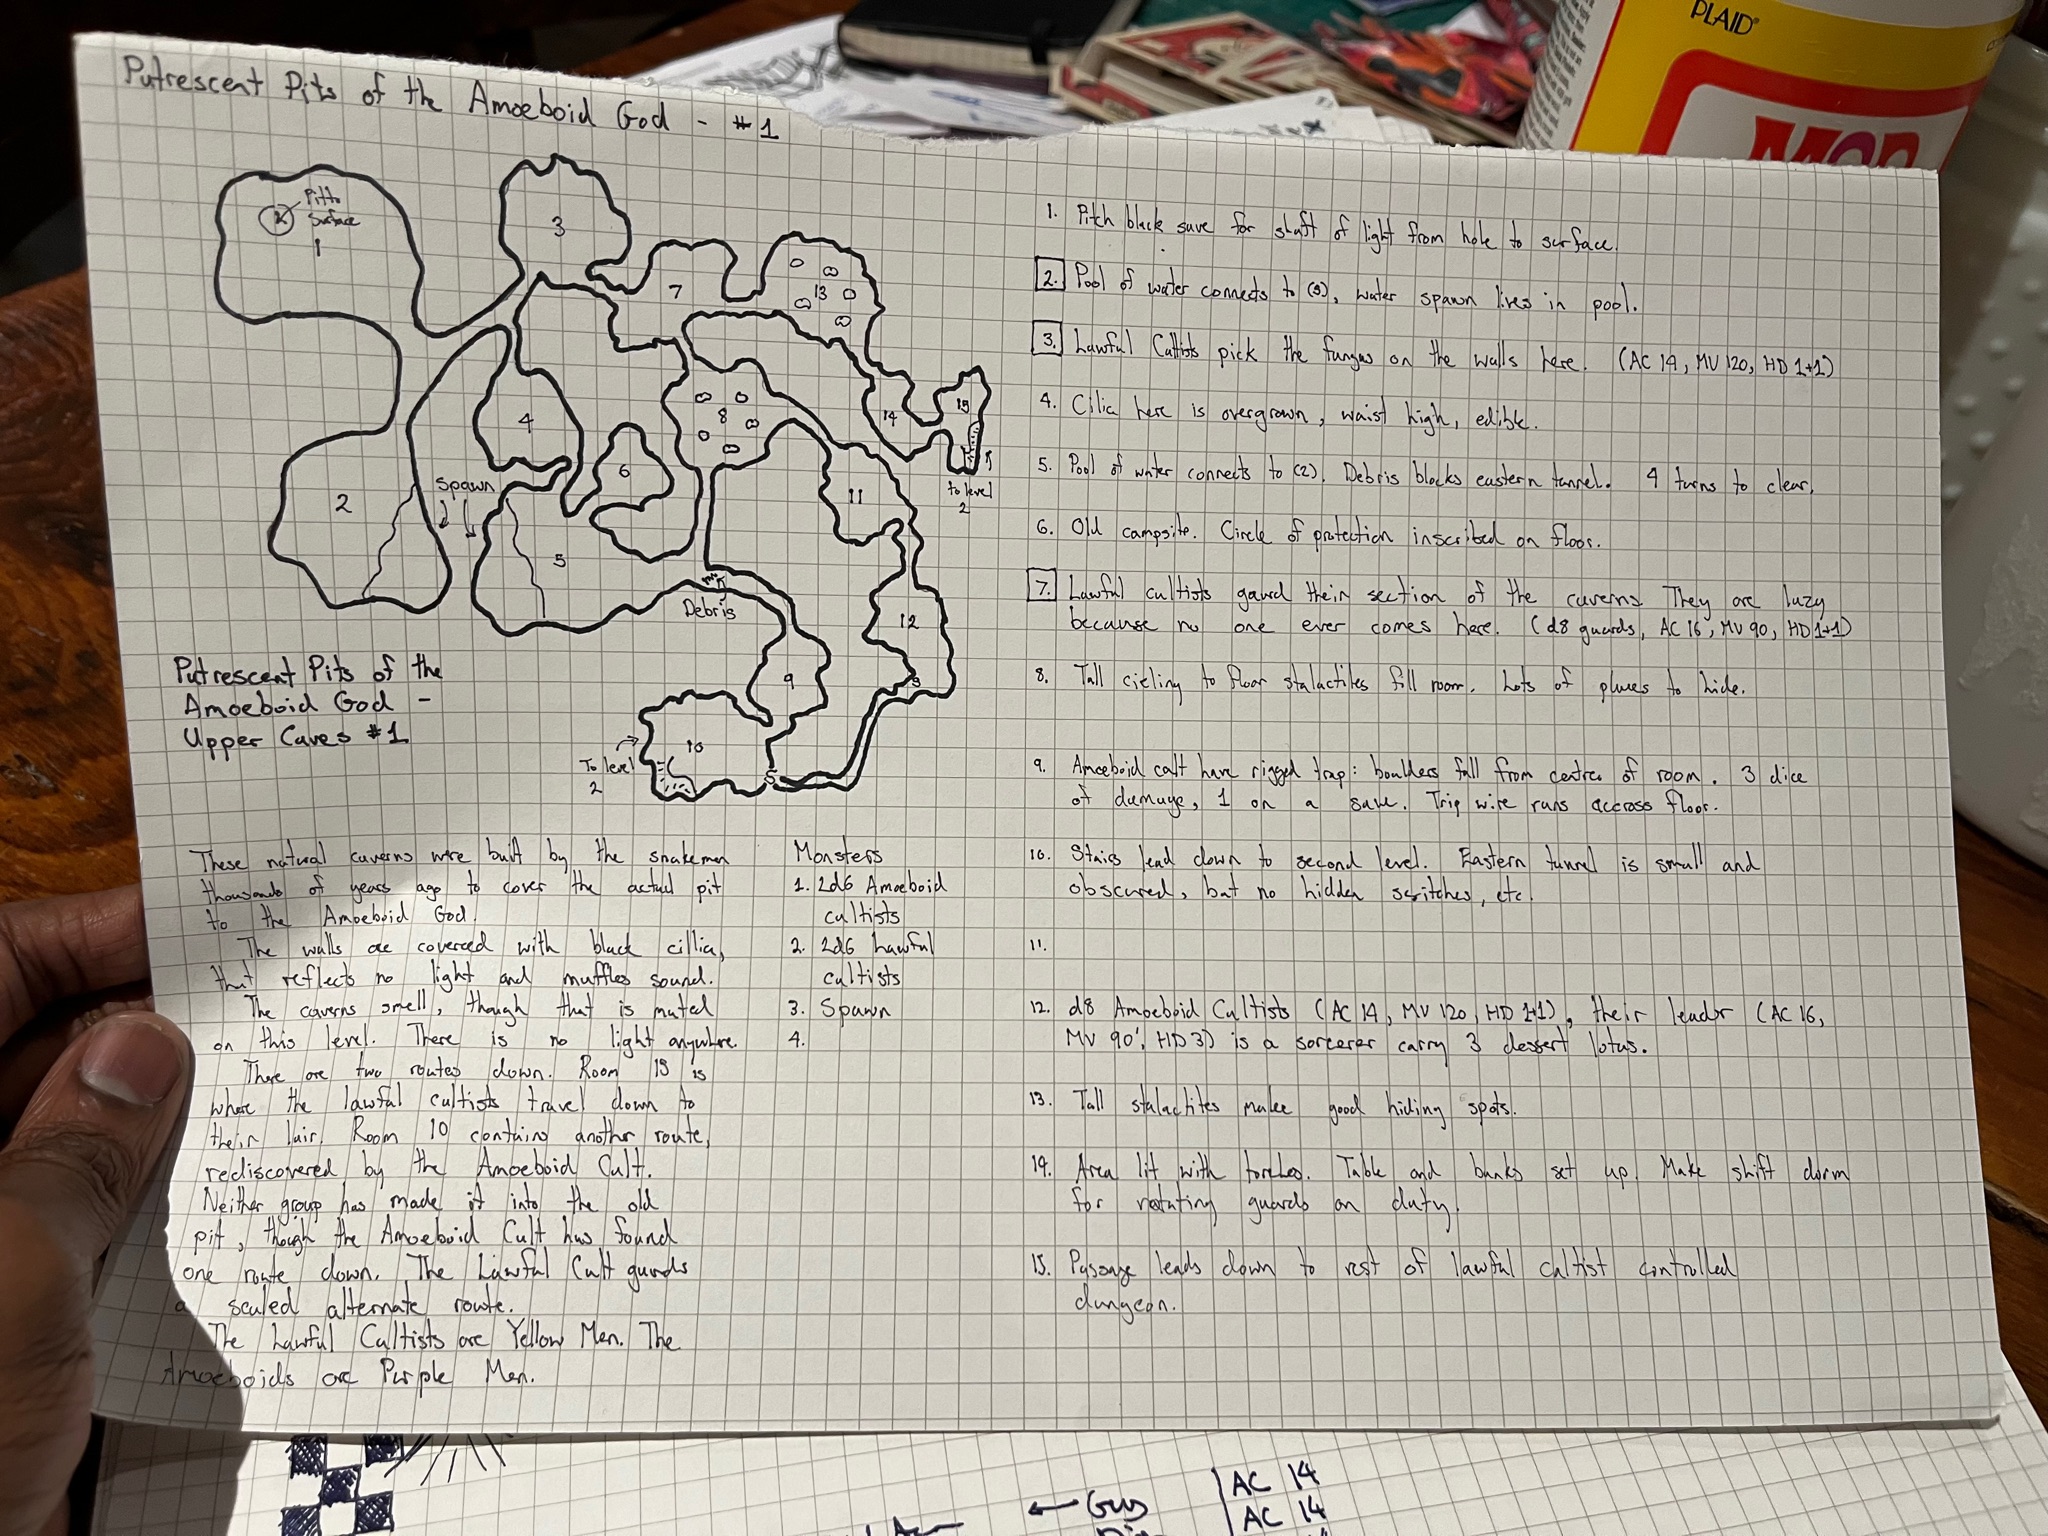 Putrescent Pits of the Amoeboid God - #1
Pit to
Surface
1
3
7
13
4
8
14
15
to level
2
6
2
Spawn
5
11
Debris
12
S
9
10
To level
2
S
Putrescent Pits of the
Amoeboid God -
Upper Caves #1
These natural caverns wre built by the snakemen
thousands of years ago to cover the actual pit
to the Amoeboid God.
The walls are coverced with black cillia,
that reflects no light and muffles sound.
The caverns smell, though that is muted
on this level. There is no light anywhere.
There are two routes down. Room 15 is
where the lawful cultists travel down to
their lair. Room 10 contains another route,
rediscovered by the Amoeboid Cult.
Neither group has made it into the old
pit, though the Amoeboid Cult has found
one route down. The Lawful Cult guards
a sealed alternate route.
The Lawful Cultists are Yellow Men. The
Amoeboids are Purple Men.
Monsters
1. 2d6 Amoeboid
cultists
2. 2d6 Lawful
cultists
3. Spawn
4.
1. Pitch black save for shaft of light from hole to surface.
2. Pool of water connects to (5), water spawn lives in pool.
3. Lawful Cultists pick the fungus on the walls here. (AC 14, MV 120, HD 1+1)
4. Cilia here is overgrown, waist high, edible.
5. Pool of water connects to (2). Debris blocks eastern tunnel. 4 turns to clear.
6. Old campsite. Circle of protection inscribed on floor.
7. Lawful cultists gaurd their section of the caverns. They are lazy
because no one ever comes here. (d8 guards, AC 16, MV 90, HD 1+1)
8. Tall cieling to floor stalactites fill room. Lots of places to hide.
9. Amoeboid cult have rigged trap: boulders fall from centre of room. 3 dice
of damage, 1 on a save. Trip wire runs accross floor.
10. Stairs lead down to second level. Eastern tunnel is small and
obscured, but no hidden switches, etc.
11.
12. d8 Amoeboid Cultists (AC 14, MV 120, HD 1+1), their leader (AC 16,
MV 90', HD 3) is a sorcerer carry 3 dessert lotus.
13. Tall stalactites make good hiding spots.
14. Area lit with torches. Table and bunks set up. Make shift dorm
for rotating guards on duty.
15. Passage leads down to rest of lawful cultist controlled
dungeon.
PLAID
MOD
AC 14
AC 14